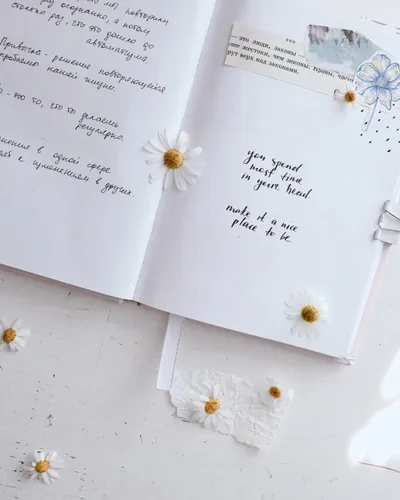 мы, повторили
раз осознанно, а потом
столько раз, что это дошло до
автоматизма.
Привычка - решение повторяющейся
проблемы нашей жизни.
- это то, что то делаем
регулярно.
в одной сфере
к изменениям в других.
— это люди, законы
лее жестоки, чем законы
рут верх над законами.
you spend
most time
in your head.
make it a nice
place to be.